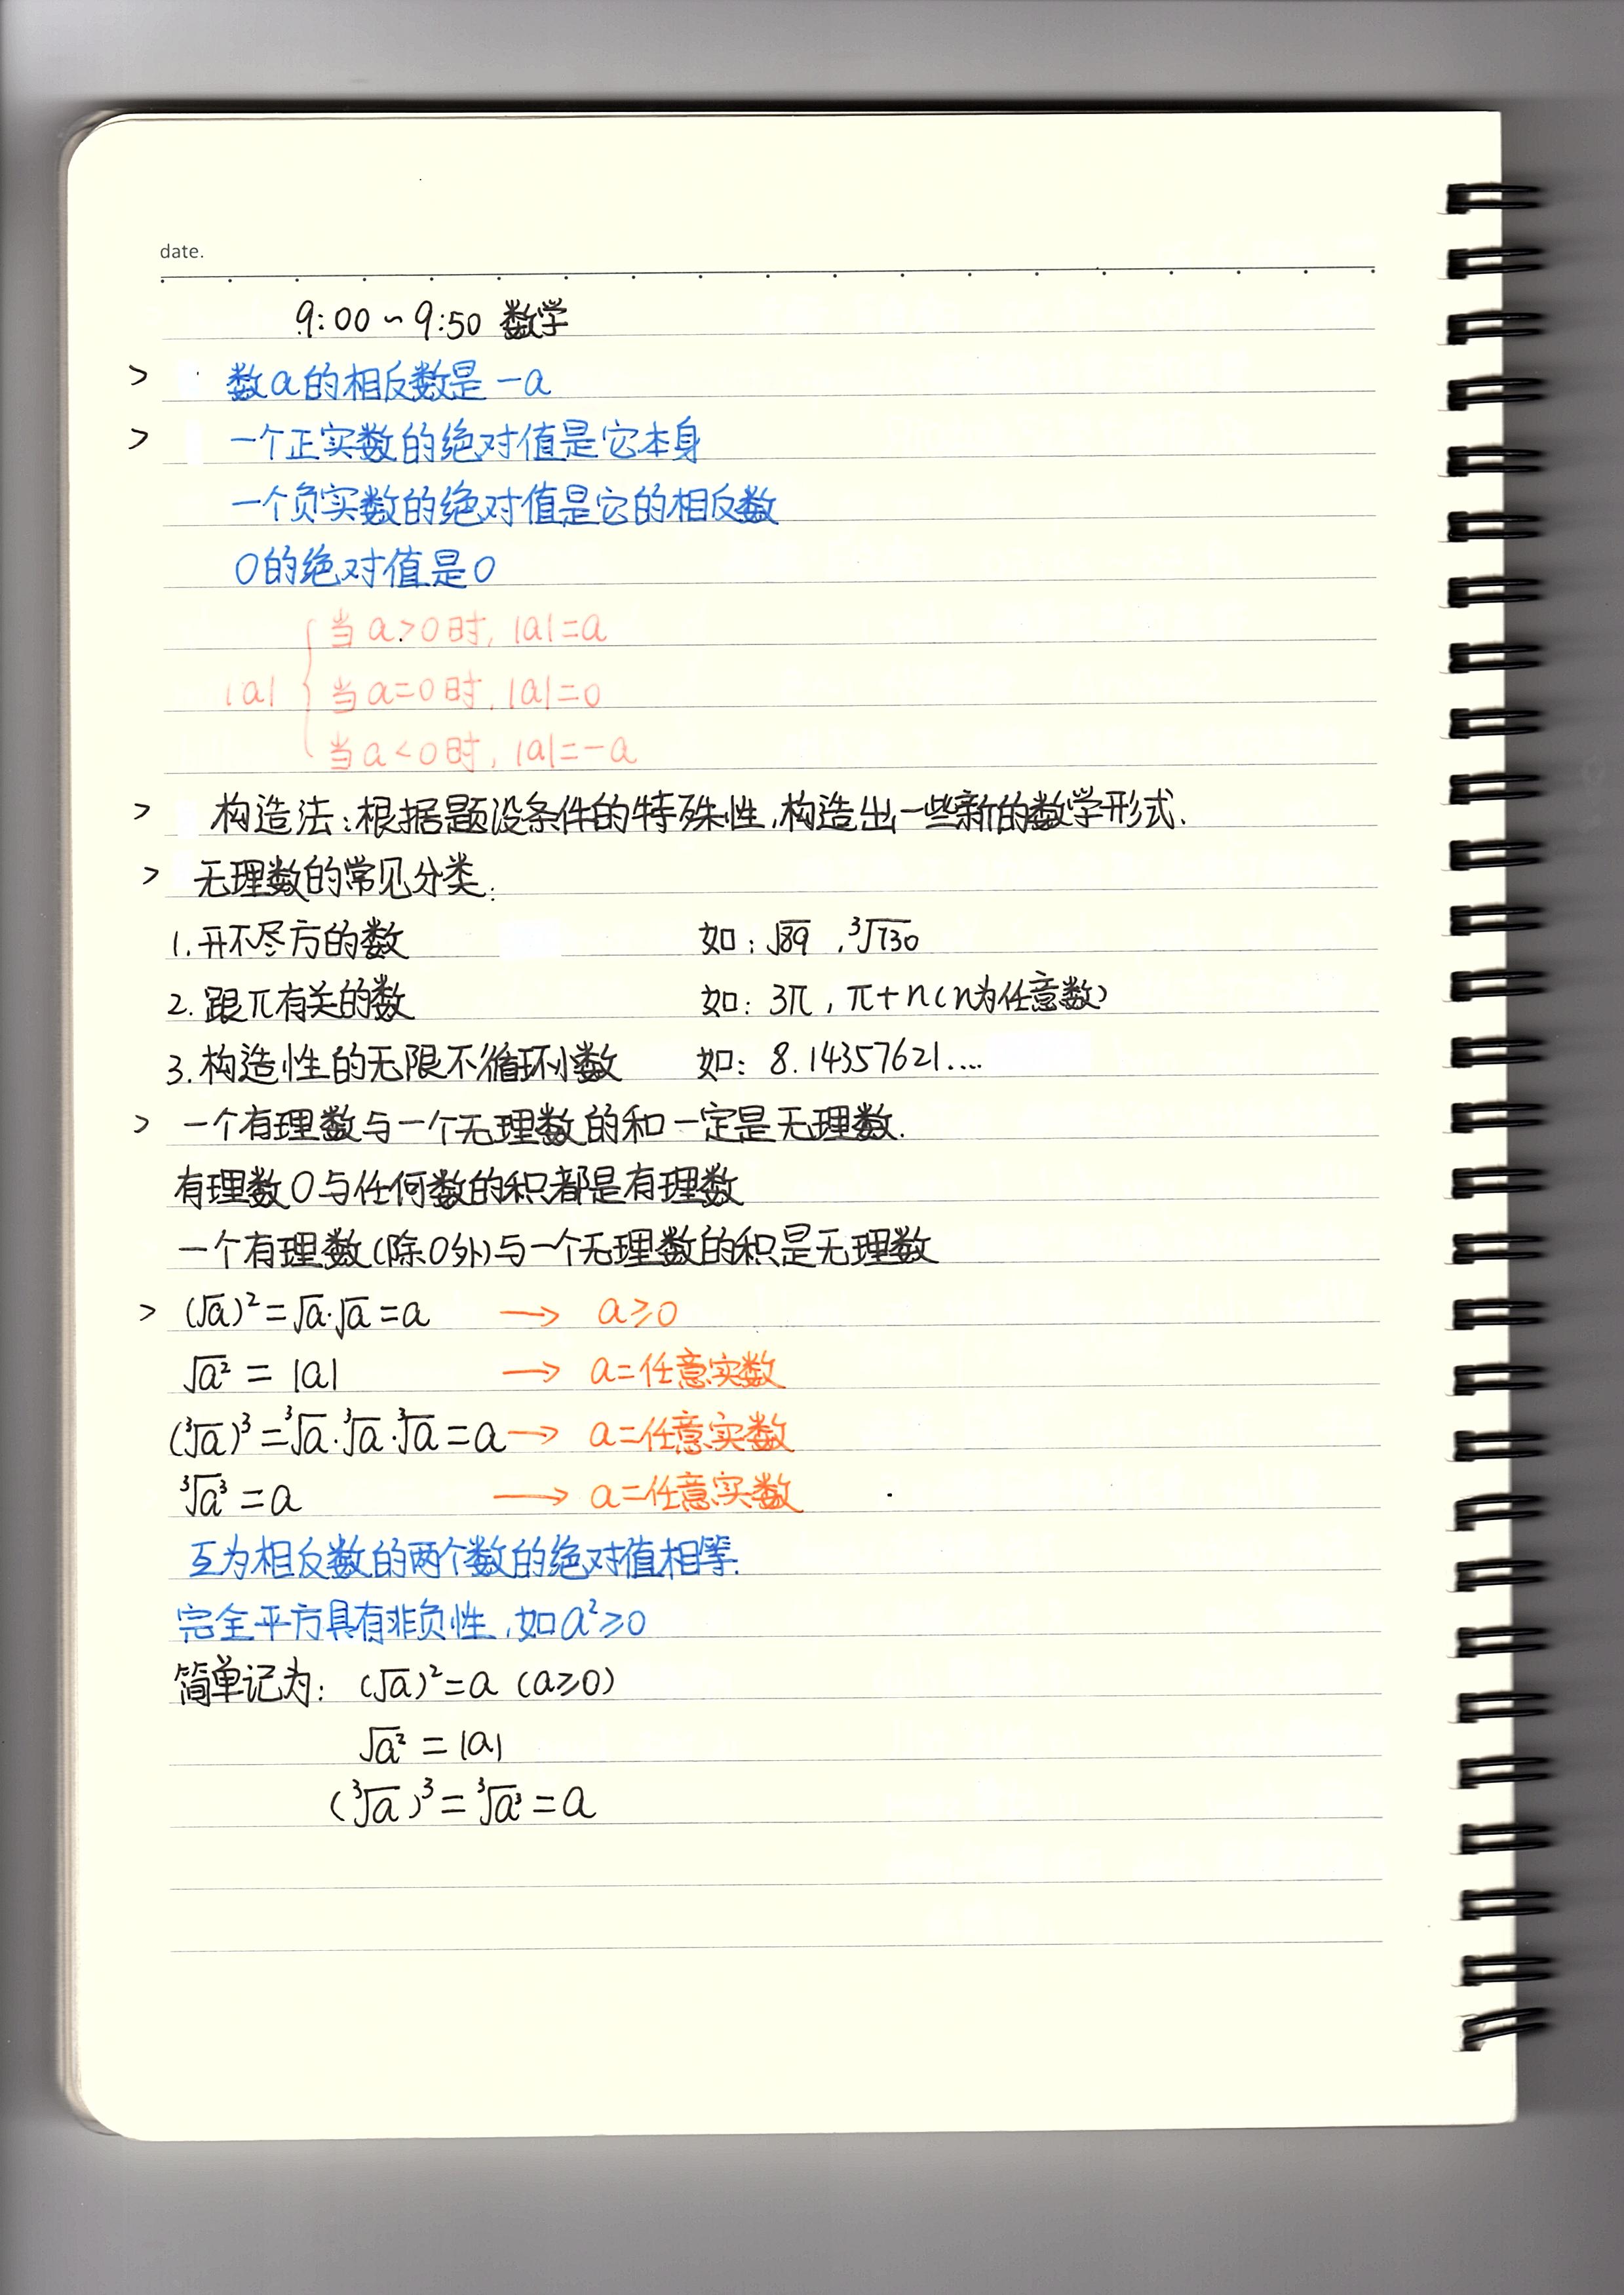 date.
9:00~9:50 数学
> 数a的相反数是-a
> 一个正实数的绝对值是它本身
一个负实数的绝对值是它的相反数
0的绝对值是0
当a>0时, |a|=a
|a| { 当a=0时, |a|=0
当a<0时, |a|=-a
> 构造法:根据题设条件的特殊性,构造出一些新的数学形式.
> 无理数的常见分类.
1.开不尽方的数 如:√89 , ³√130
2.跟π有关的数 如: 3π, π+n(n为任意数)
3.构造性的无限不循环小数 如: 8.14357621....
> 一个有理数与一个无理数的和一定是无理数.
有理数0与任何数的积都是有理数
一个有理数(除0外)与一个无理数的积是无理数
> (√a)²=√a·√a=a → a≥0
√a² = |a| → a=任意实数
(³√a)³=³√a·³√a·³√a=a → a=任意实数
³√a³=a → a=任意实数
互为相反数的两个数的绝对值相等.
完全平方具有非负性,如a²≥0
简单记为: (√a)²=a (a≥0)
√a² = |a|
(³√a)³=³√a³=a